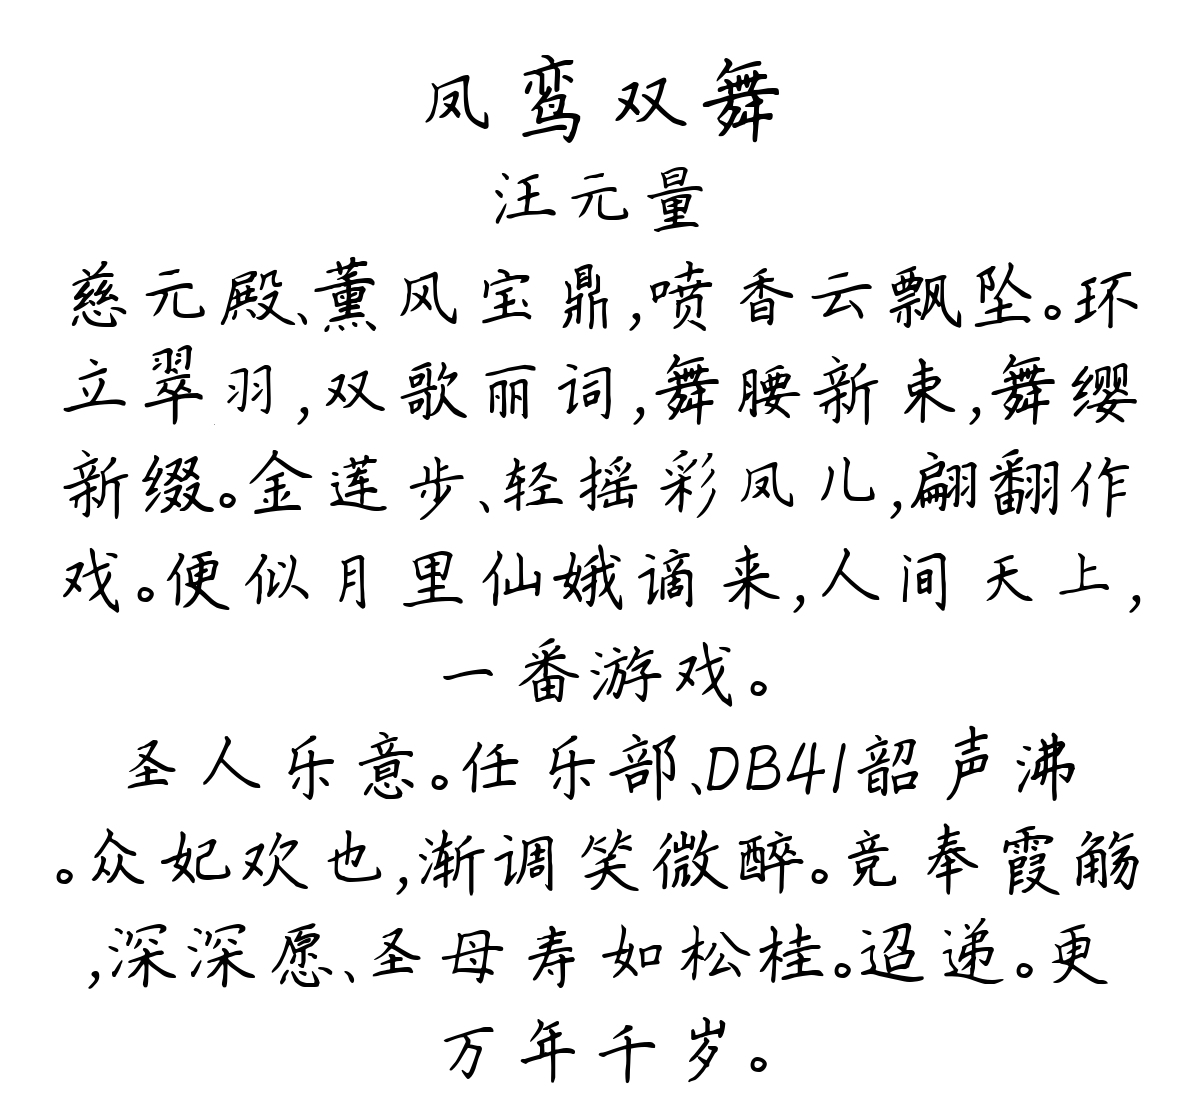 凤鸾双舞
汪元量
慈元殿、薰风宝鼎,喷香云飘坠。环
立翠羽,双歌丽词,舞腰新束,舞缨
新缀。金莲步、轻摇彩凤儿,翩翻作
戏。便似月里仙娥谪来,人间天上,
一番游戏。
圣人乐意。任乐部、DB41韶声沸
。众妃欢也,渐调笑微醉。竞奉霞觞
,深深愿、圣母寿如松桂。迢递。更
万年千岁。